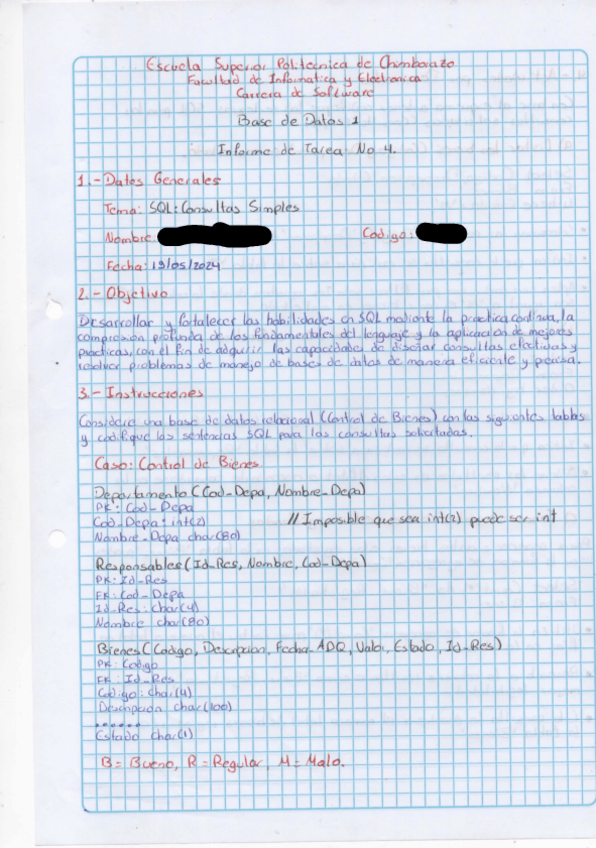 Escuela Superior Politecnica de Chimborazo
Facultad de Informatica y Electronica
Carrera de Software
Base de Datos 1
Informe de Tarea No 4.
1.- Datos Generales
Tema: SQL: Consultas Simples
Nombre
Codigo:
Fecha: 19/05/2024
2.- Objetivo
Desarrollar y fortalecer las habilidades en SQL mediante la practica continua, la
compresion profunda de los fundamentales del lenguaje y la aplicacion de mejores
practicas, con el fin de adquirir las capacidades de diseñar consultas efectivas y
resolver problemas de manejo de bases de datos de manera eficiente y precisa.
3.- Instrucciones
Considere una base de datos relacional (Control de Bienes) con las siguientes tablas
y codifique las sentencias SQL para las consultas solicitadas.
Caso: Control de Bienes.
Departamento (Cod-Depa, Nombre-Depa)
PK: Cod-Depa
Cod-Depa: int(2) // Imposible que sea int(2) puede ser int
Nombre-Depa char(80)
Responsables (Id-Res, Nombre, Cod-Depa)
PK: Id-Res
FK: Cod-Depa
Id-Res: Char(4)
Nombre char(80)
Bienes (Codigo, Descripcion, Fecha-ADQ, Valor, Estado, Id-Res)
PK: Codigo
FK: Id-Res
Codigo: char(4)
Descripcion char(100)
......
Estado char(1)
B = Bueno, R = Regular, M = Malo.